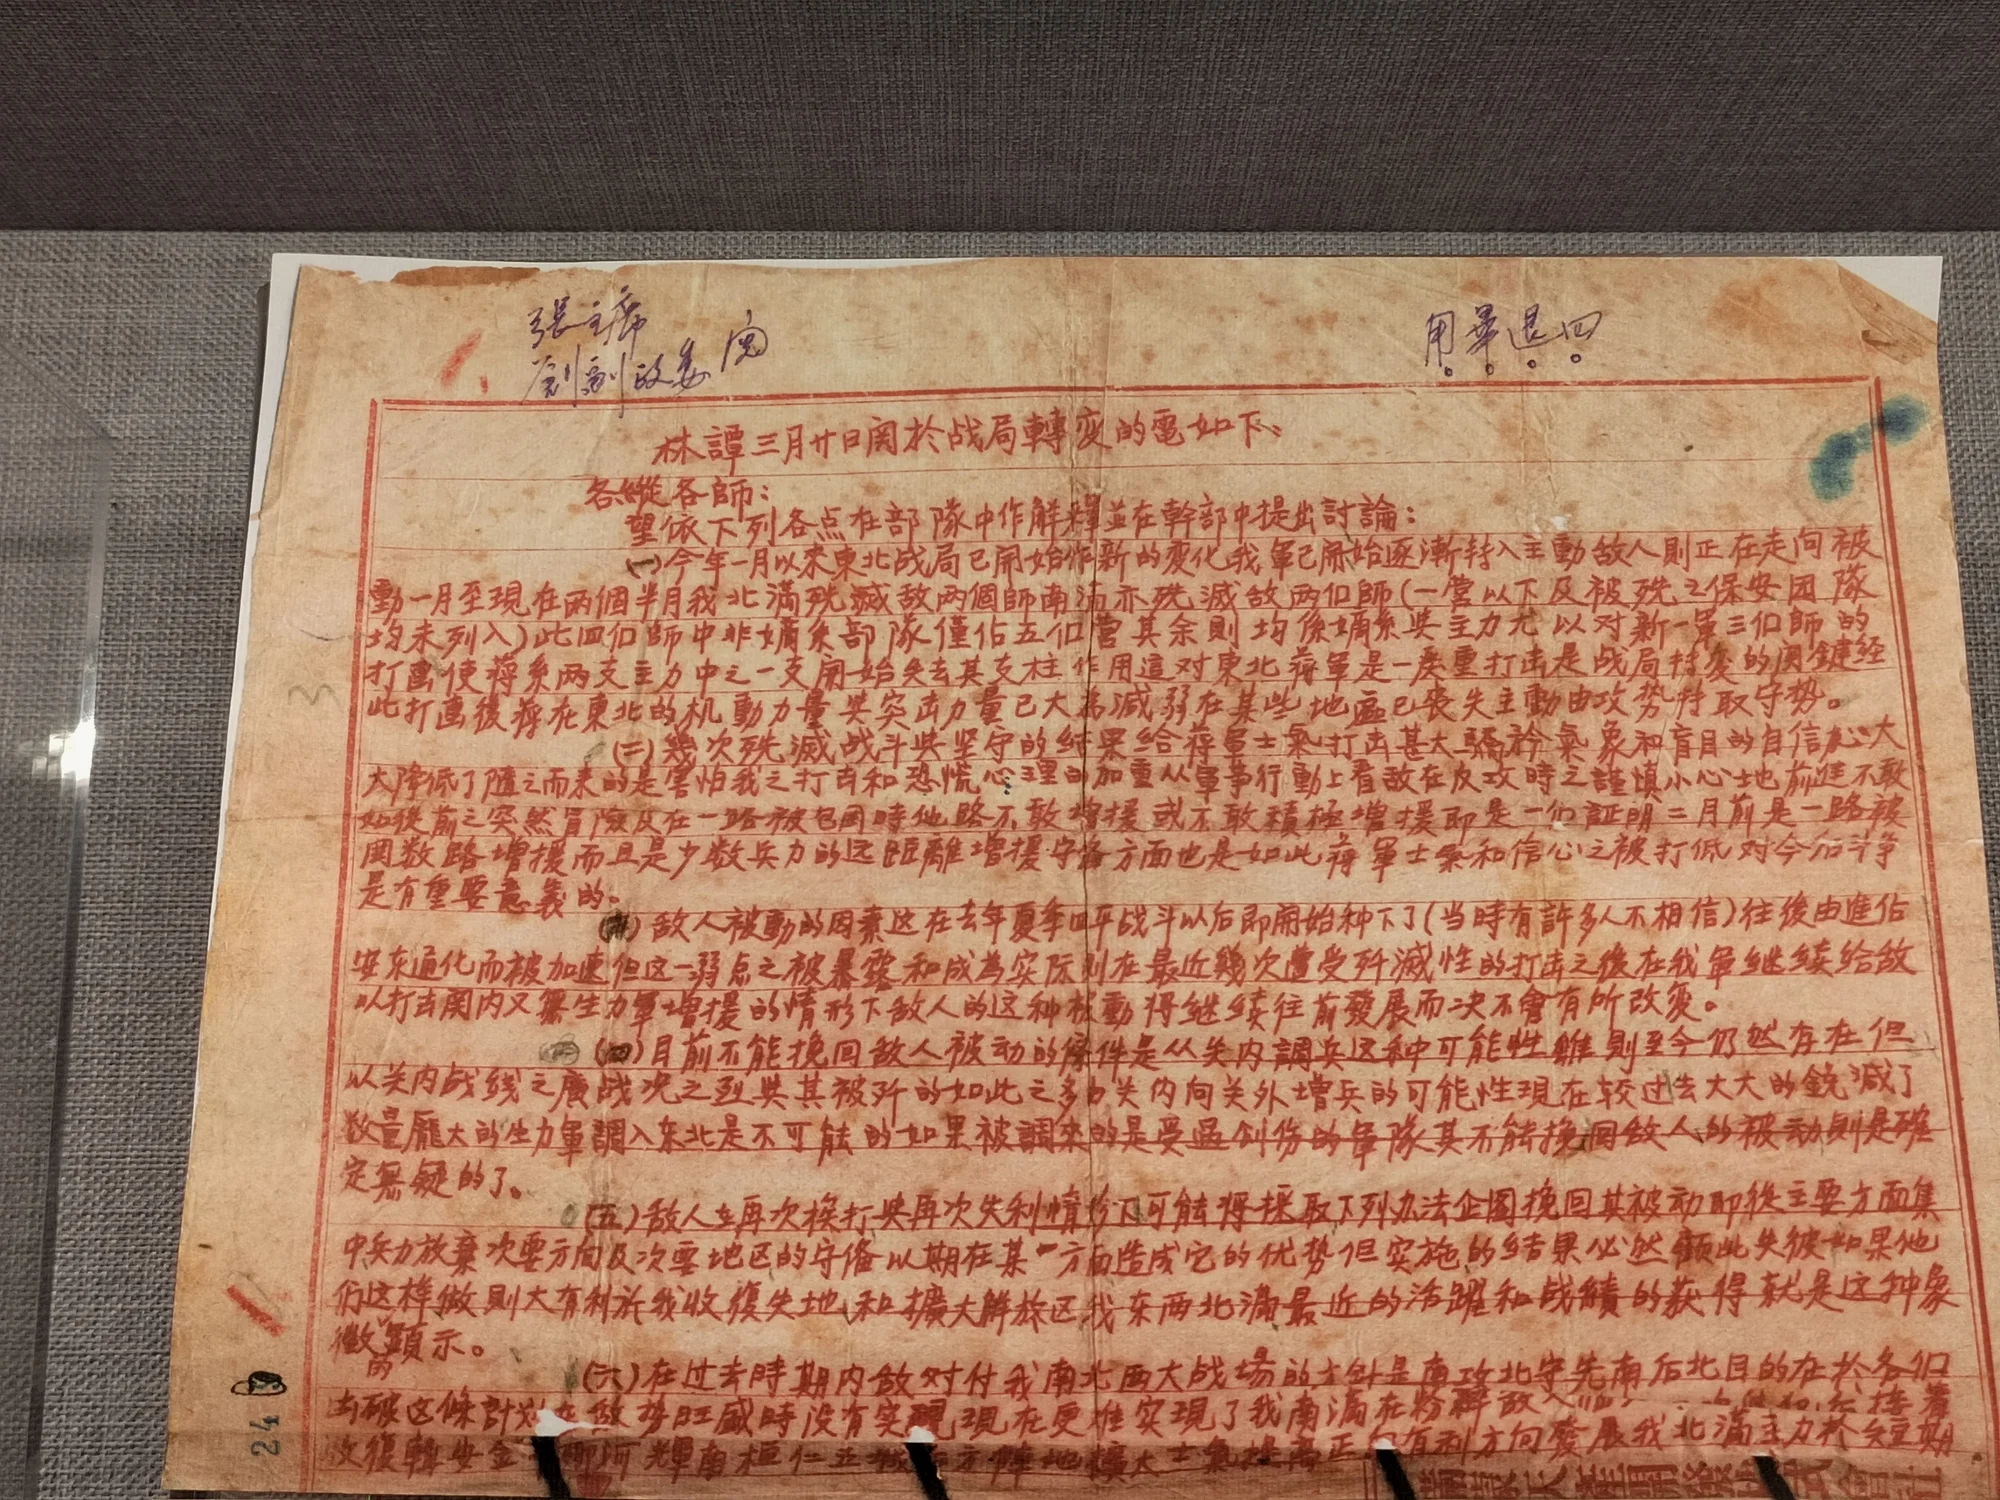 張主席
劉副政委 閱
用畢退回
林譚三月廿日関於战局轉变的電如下:
各縱各師:
望依下列各点在部隊中作解釋並在幹部中提出討論:
(一)今年一月以來東北战局已開始作新的变化我軍已開始逐漸转入主動敌人則正在走向被
動一月至現在两個半月我北滿殲滅敌两個師南滿亦殲滅敌两個師(一营以下及被殲之保安团隊
均未列入)此四個師中非嫡系部隊僅佔五個营其余則均係嫡系与主力尤以对新一軍三個師的
打击使蒋系两支主力中之一支開始失去其支柱作用這对東北蒋軍是一严重打击是战局转变的関鍵经
此打击後蒋在東北的机動力量与突击力量已大為減弱在某些地區已丧失主動由攻势转取守势。
(二)幾次殲滅战斗与坚守的结果给蒋軍士氣打击甚大驕矜氣象和盲目的自信心大
大降低了随之而来的是害怕我之打击和恐慌心理的加重从軍事行動上看敌在反攻時之謹慎小心地前進不敢
如從前之突然冒險及在一路被包围時他路不敢增援或不敢積極增援即是一個証明二月前是一路被
围数路增援而且是少数兵力的远距離增援守备方面也是如此蒋軍士氣和信心之被打低对今后斗争
是有重要意義的。
(三)敌人被動的因素这在去年夏季四平战斗以后即開始种下了(当時有許多人不相信)往後由進佔
安东通化而被加速但这一弱点之被暴露和成為实际則在最近幾次遭受歼滅性的打击之後在我軍继续给敌
以打击関内又無生力軍增援的情形下敌人的这种被動将继续往前發展而决不會有所改变。
(四)目前不能挽回敌人被动的條件是从关内調兵这种可能性雖則至今仍然存在但
以关内战线之廣战况之烈与其被歼的如此之多由关内向关外增兵的可能性現在较过去大大的銳減了
数量龐大的生力軍調入东北是不可能的如果被調來的是受过创伤的軍隊其不能挽回敌人的被动則是確
定無疑的了。
(五)敌人在再次挨打与再次失利情形下可能将採取下列办法企圖挽回其被动即從主要方面集
中兵力放棄次要方向及次要地区的守備以期在某一方面造成它的优势但实施的结果必然顧此失彼如果他
们这样做則大有利於我收復失地和擴大解放区我东西北滿最近的活躍和战績的获得就是这种象
徵的顕示。
(六)在过去時期内敌对付我南北两大战場的方針是南攻北守先南后北目的在於各個
击破这條計划在敌势旺盛時没有实現現在更难实現了我南滿在粉碎敌人
收復輯安金川柳河輝南桓仁五城后方陣地擴大士氣提高正向有利方向發展我北滿主力於
24